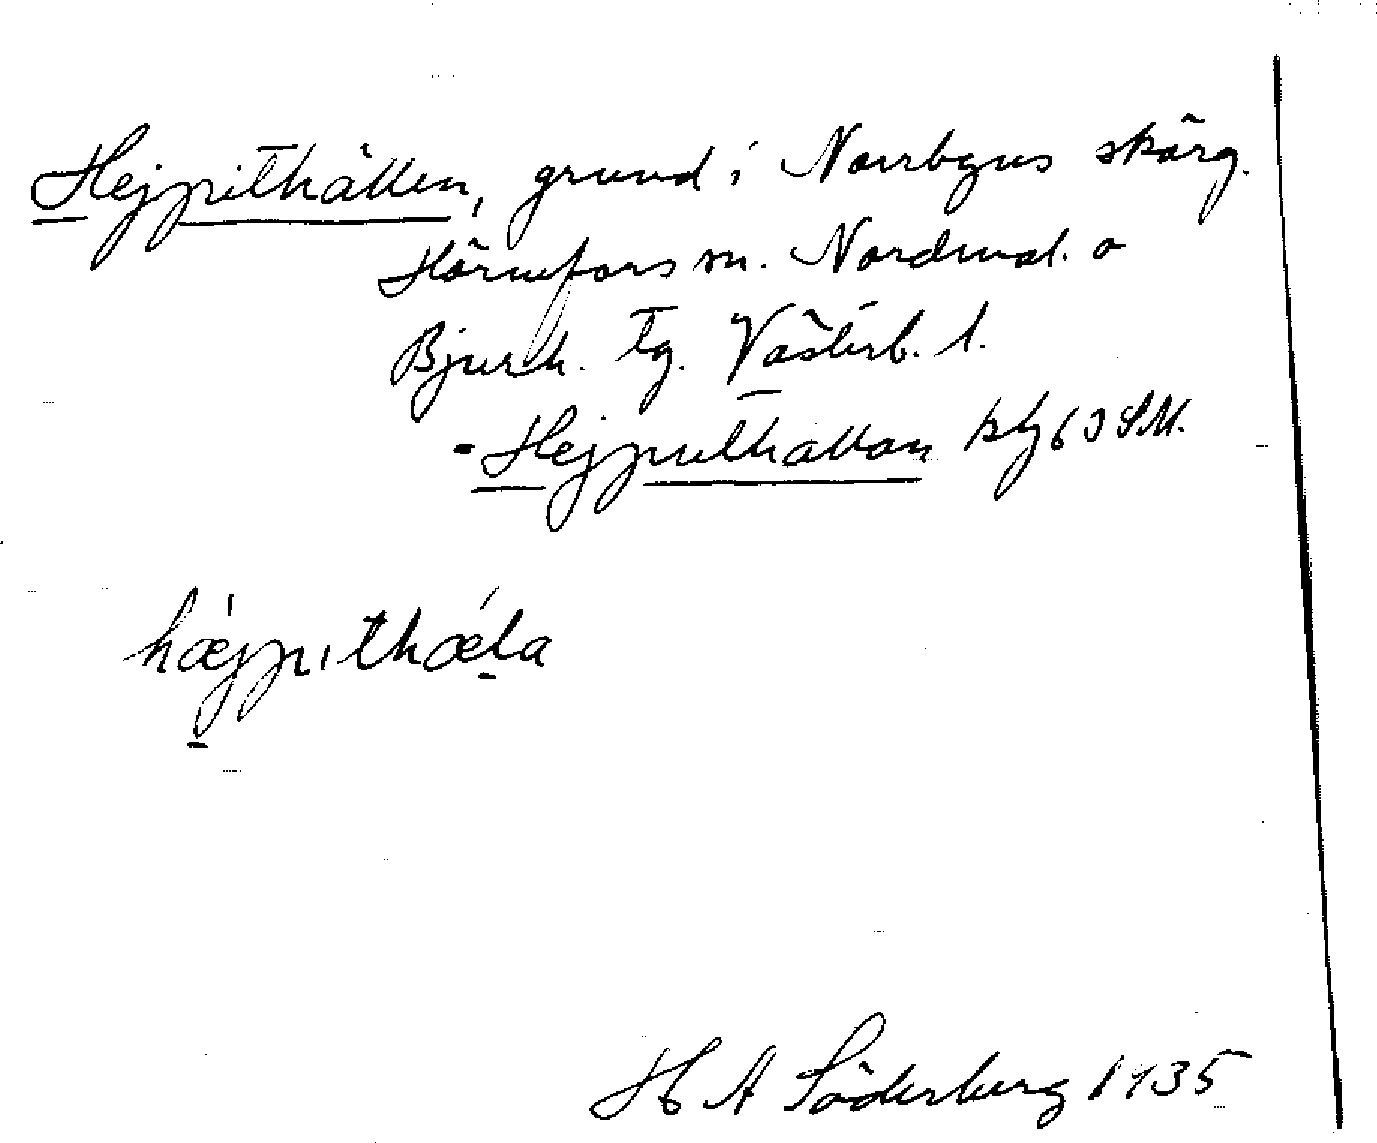 Hejpithällen, grund i Norrbyns skärg.
Hörnefors sn. Nordmal. o
Bjurh. Tg. Västerb. l.
- Hejpithällan bl 63 SM.
hæjpıthæla
H A Söderberg 1935